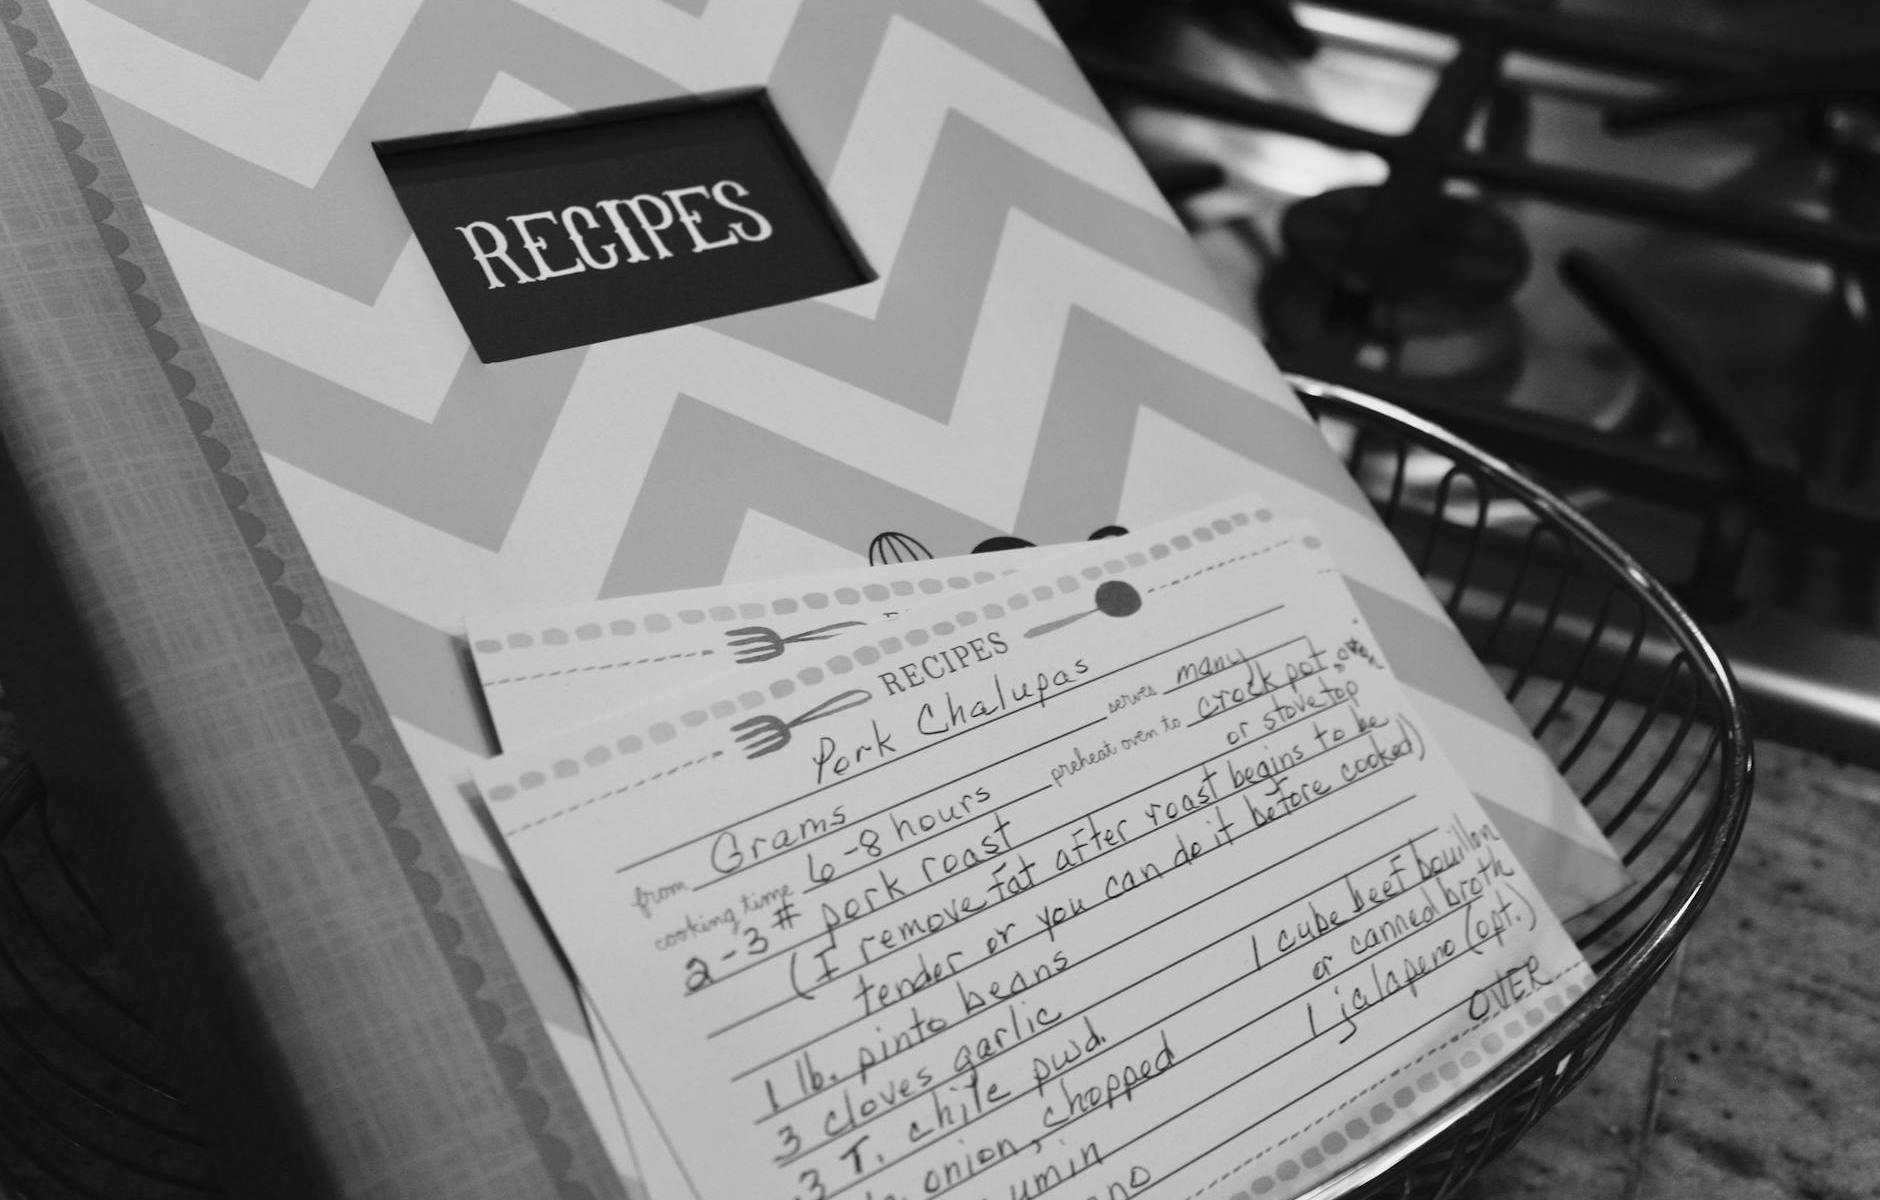 RECIPES
RECIPES
Pork Chalupas
from Grams serves many
cooking time 6-8 hours preheat oven to crock pot, oven
or stove top
2-3# pork roast
(I remove fat after roast begins to be
tender or you can do it before cooked)
1 lb. pinto beans
3 cloves garlic 1 cube beef bouillon
3 T. chile pwd. or canned broth
onion, chopped 1 jalapeno (opt.)
OVER